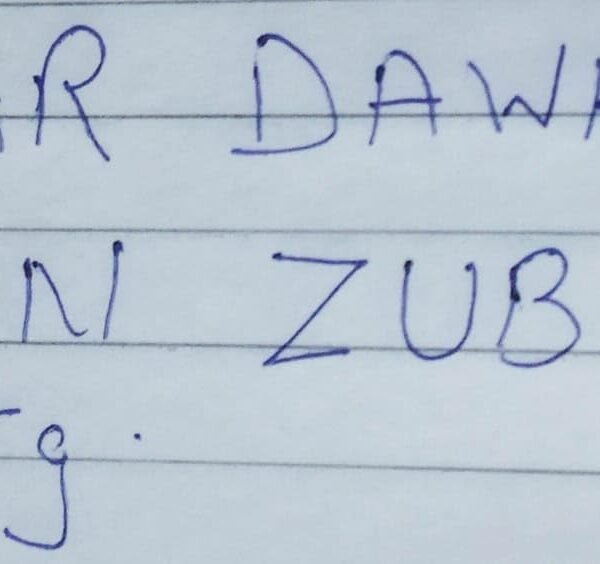 R DAW
N ZUB
g.